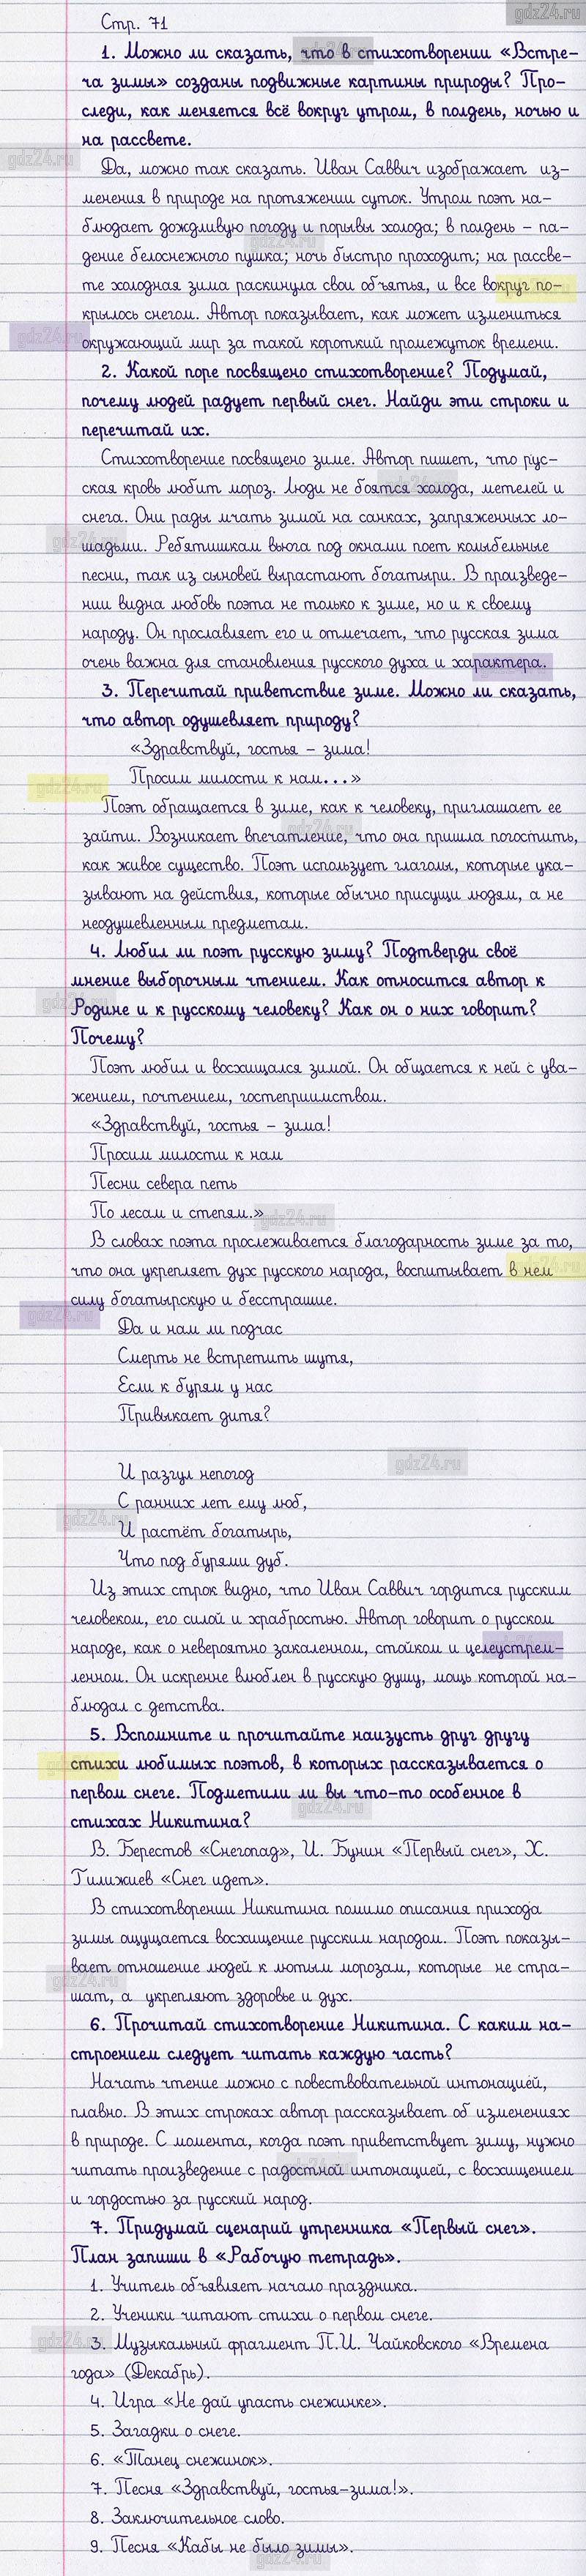 gdz24.ru
Стр. 71
1. Можно ли сказать, что в стихотворении «Встре-
ча зимы» созданы подвижные картины природы? Про-
следи, как меняется всё вокруг утром, в полдень, ночью и
на рассвете.
Да, можно так сказать. Иван Саввич изображает из-
менения в природе на протяжении суток. Утром поэт на-
блюдает дождливую погоду и порывы холода; в полдень – па-
дение белоснежного пушка; ночь быстро проходит; на рассве-
те холодная зима раскинула свои объятья, и все вокруг по-
крылось снегом. Автор показывает, как может измениться
окружающий мир за такой короткий промежуток времени.
2. Какой поре посвящено стихотворение? Подумай,
почему людей радует первый снег. Найди эти строки и
перечитай их.
Стихотворение посвящено зиме. Автор пишет, что рус-
ская кровь любит мороз. Люди не боятся холода, метелей и
снега. Они рады мчать зимой на санках, запряженных ло-
шадьми. Ребятишкам вьюга под окнами поет колыбельные
песни, так из сыновей вырастают богатыри. В произведе-
нии видна любовь поэта не только к зиме, но и к своему
народу. Он прославляет его и отмечает, что русская зима
очень важна для становления русского духа и характера.
3. Перечитай приветствие зиме. Можно ли сказать,
что автор одушевляет природу?
«Здравствуй, гостья – зима!
Просим милости к нам...»
Поэт обращается в зиме, как к человеку, приглашает ее
зайти. Возникает впечатление, что она пришла погостить,
как живое существо. Поэт использует глаголы, которые ука-
зывают на действия, которые обычно присущи людям, а не
неодушевленным предметам.
4. Любил ли поэт русскую зиму? Подтверди своё
мнение выборочным чтением. Как относится автор к
Родине и к русскому человеку? Как он о них говорит?
Почему?
Поэт любил и восхищался зимой. Он общается к ней с ува-
жением, почтением, гостеприимством.
«Здравствуй, гостья – зима!
Просим милости к нам
Песни севера петь
По лесам и степям.»
В словах поэта прослеживается благодарность зиме за то,
что она укрепляет дух русского народа, воспитывает в нем
силу богатырскую и бесстрашие.
Да и нам ли подчас
Смерть не встретить шутя,
Если к бурям у нас
Привыкает дитя?
И разгул непогод
С ранних лет ему люб,
И растёт богатырь,
Что под бурями дуб.
Из этих строк видно, что Иван Саввич гордится русским
человеком, его силой и храбростью. Автор говорит о русском
народе, как о невероятно закаленном, стойком и целеустрем-
ленном. Он искренне влюблен в русскую душу, мощь которой на-
блюдал с детства.
5. Вспомните и прочитайте наизусть друг другу
стихи любимых поэтов, в которых рассказывается о
первом снеге. Подметили ли вы что-то особенное в
стихах Никитина?
В. Берестов «Снегопад», И. Бунин «Первый снег», Х.
Гилижиев «Снег идет».
В стихотворении Никитина помимо описания прихода
зимы ощущается восхищение русским народом. Поэт показы-
вает отношение людей к лютым морозам, которые не стра-
шат, а укрепляют здоровье и дух.
6. Прочитай стихотворение Никитина. С каким на-
строением следует читать каждую часть?
Начать чтение можно с повествовательной интонацией,
плавно. В этих строках автор рассказывает об изменениях
в природе. С момента, когда поэт приветствует зиму, нужно
читать произведение с радостной интонацией, с восхищением
и гордостью за русский народ.
7. Придумай сценарий утренника «Первый снег».
План запиши в «Рабочую тетрадь».
1. Учитель объявляет начало праздника.
2. Ученики читают стихи о первом снеге.
3. Музыкальный фрагмент П.И. Чайковского «Времена
года» (Декабрь).
4. Игра «Не дай упасть снежинке».
5. Загадки о снеге.
6. «Танец снежинок».
7. Песня «Здравствуй, гостья-зима!».
8. Заключительное слово.
9. Песня «Кабы не было зимы».